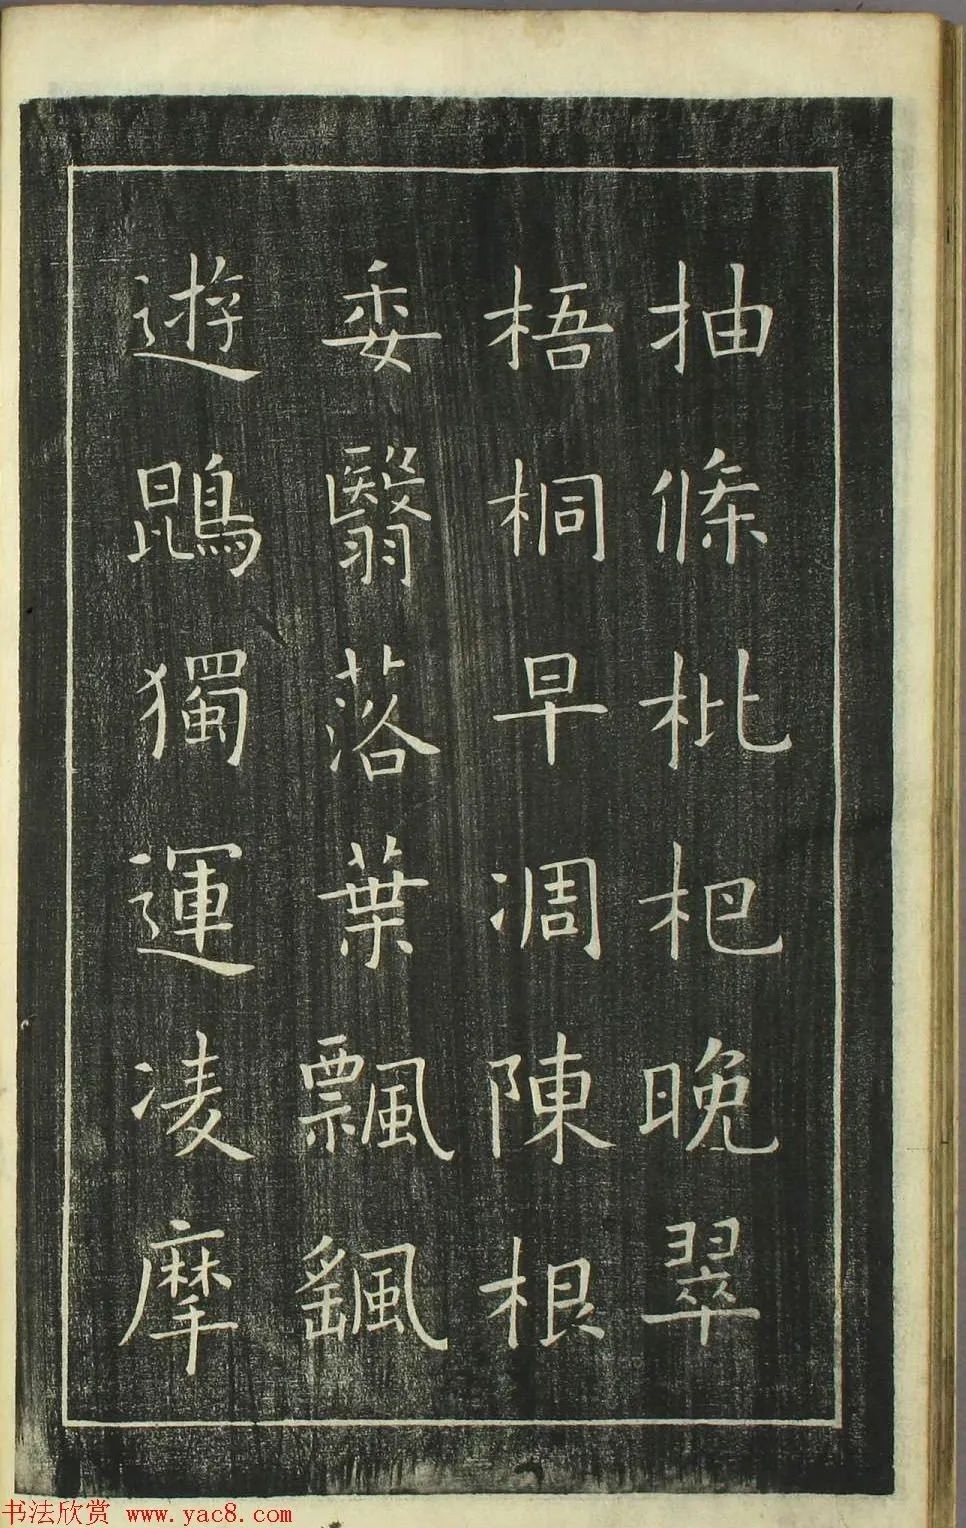 抽條枇杷晚翠
梧桐早凋陳根
委翳落葉飄颻
遊鵾獨運凌摩
书法欣赏 www.yac8.com